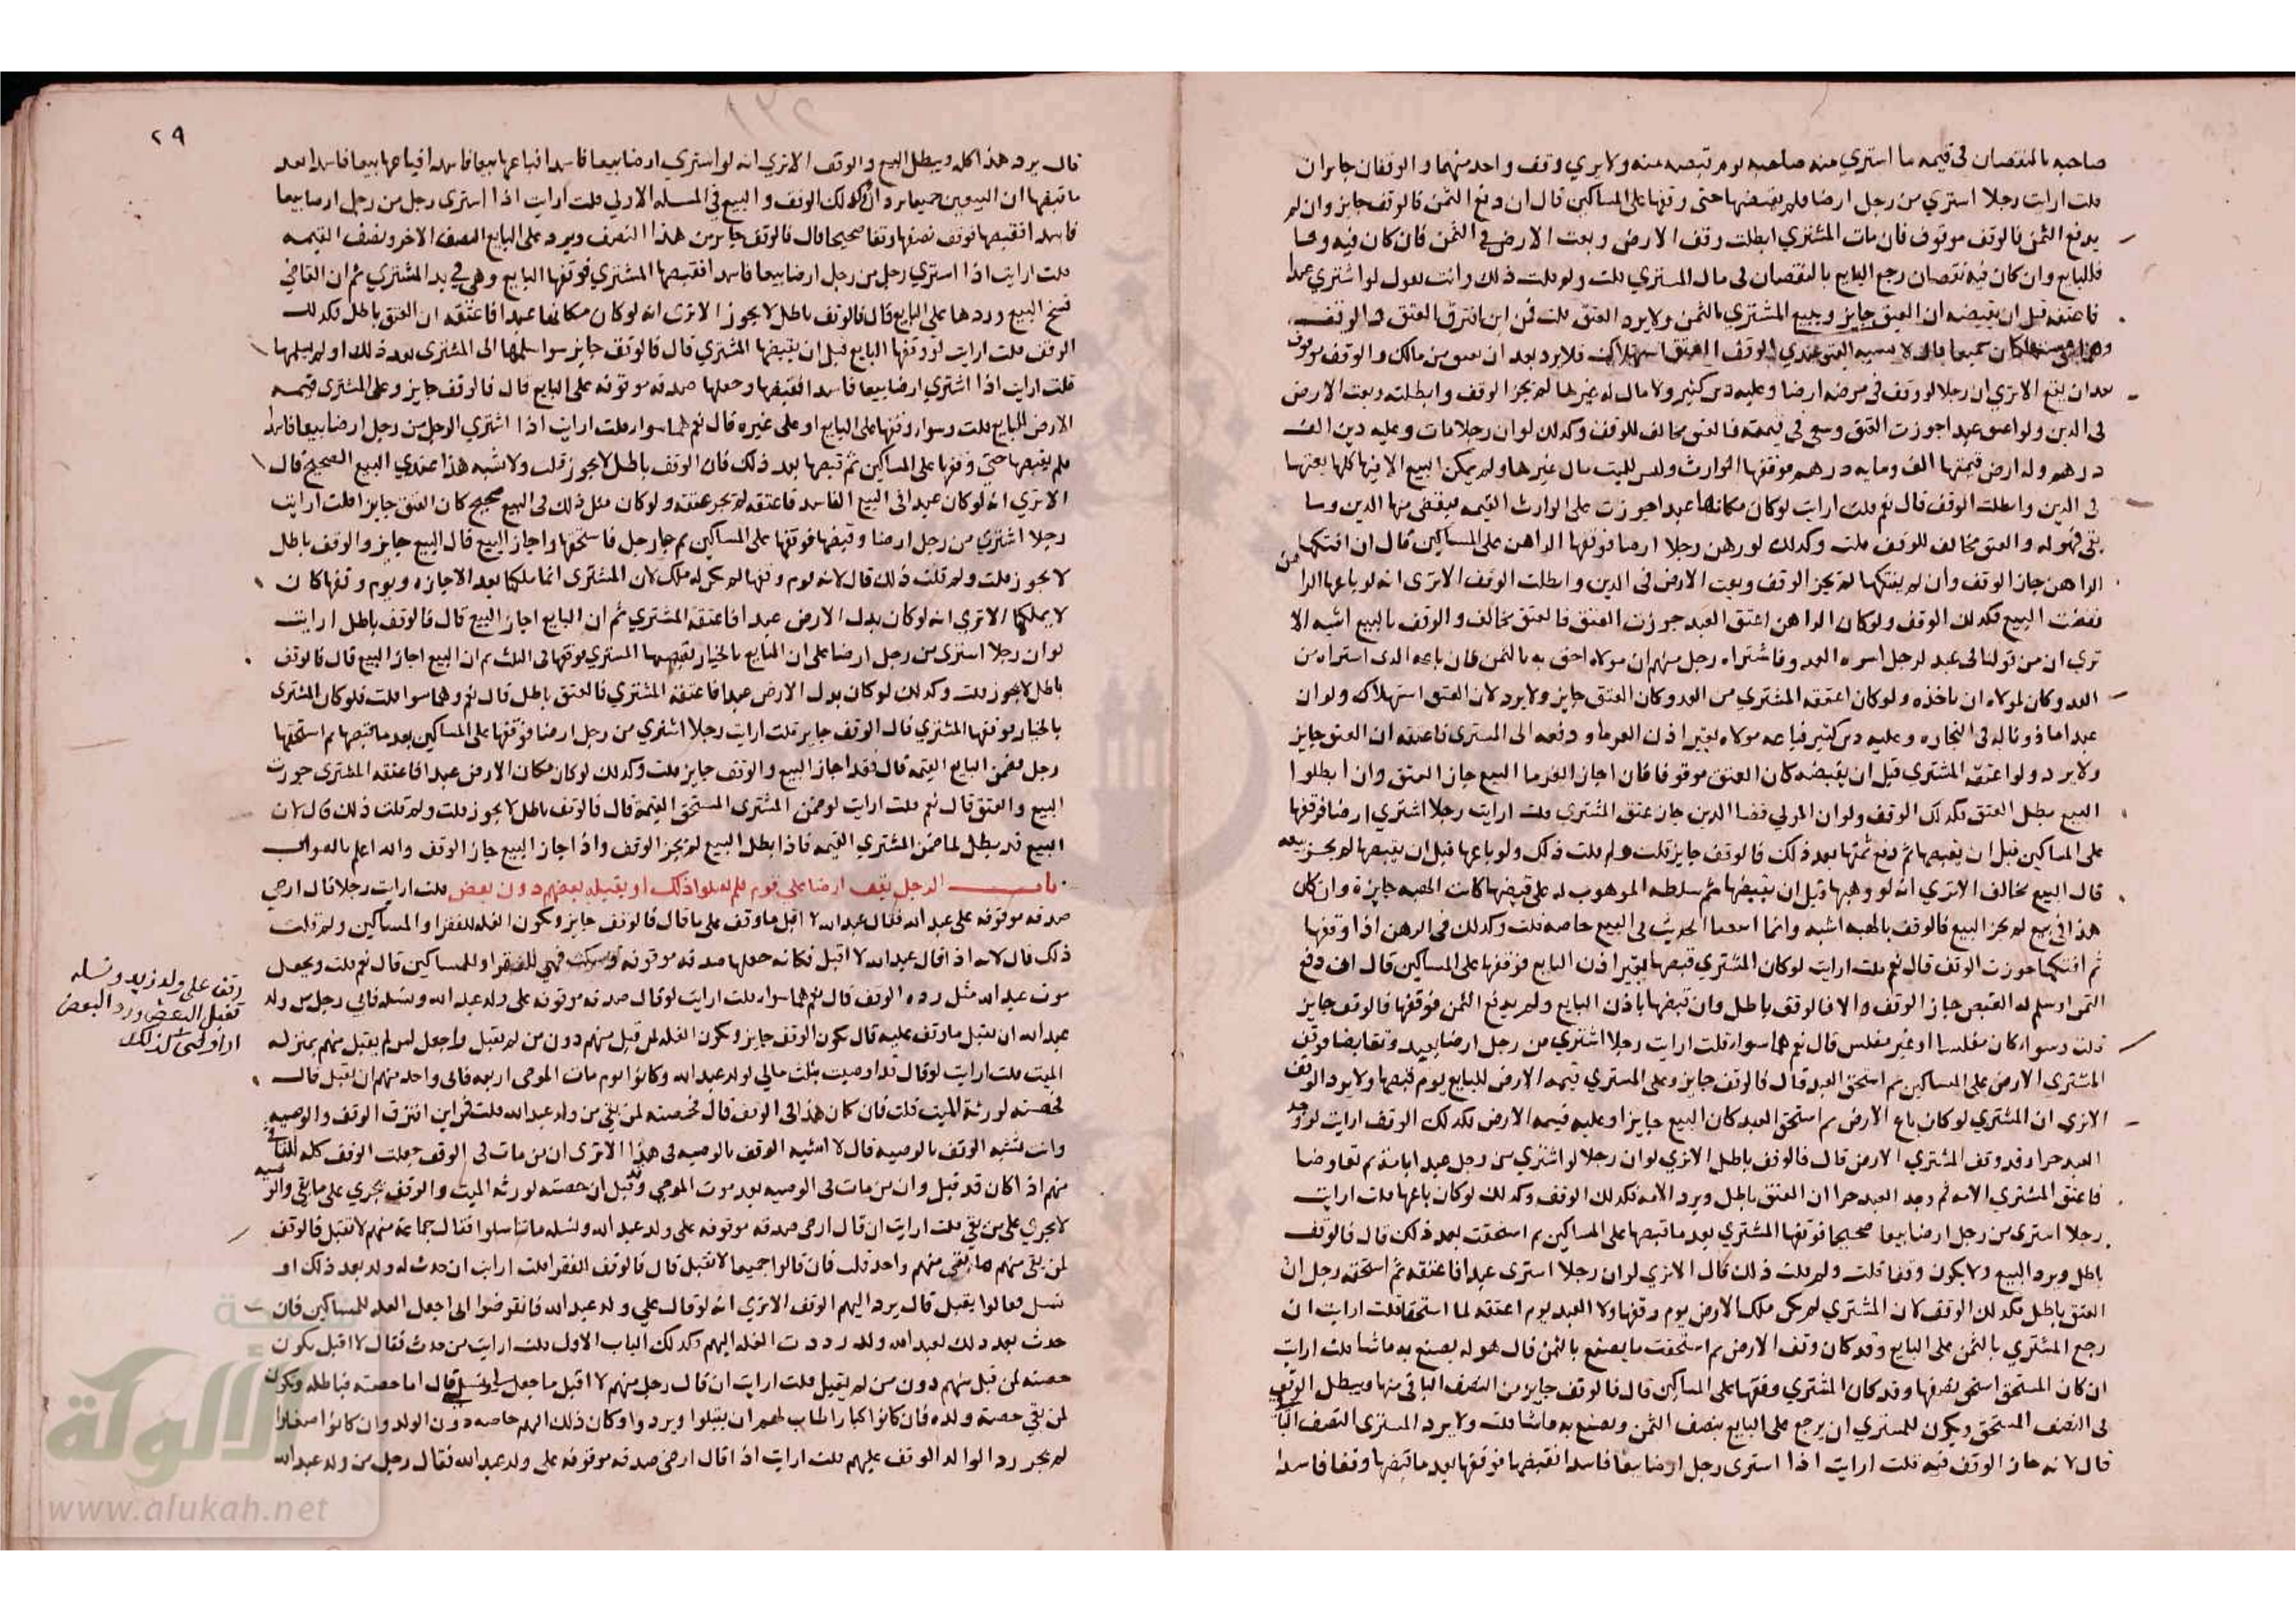 صاحبه بالنقصان في قيمه ما اشتري منه صاحبه يوم قبضه منه ولا يري وقف واحد منهما والوقفان جايزان
قلت ارايت رجلا اشتري من رجل ارضا فلم يقبضها حتى وقفها على المساكين قال ان دفع الثمن فالوقف جايز وان لم
يدفع الثمن فالوقف موقوف فان مات المشتري ابطلت وقف الارض وبعت الارض في الثمن فان كان فيه وفا
فللبايع وان كان فيه نقصان رجع البايع بالنقصان في مال المشتري قلت ولم قلت ذلك وانت تقول لو اشتري عبدا
فاعتقه قبل ان يقبضه ان العتق جايز ويتبع المشتري بالثمن ولا يرد العتق قلت فمن اين افترق العتق والوقف
قال لا يشبه العتق عندي الوقف العتق استهلاك فلا يرد بعد ان يعتق من مالك والوقف موقوف
بعد ان يقع الا تري ان رجلا لو وقف في مرضه ارضا وعليه دين كثير ولا مال له غيرها لم يجز الوقف وابطلته وبعت الارض
في الدين ولو اعتق عبدا جوزت العتق وسعي في قيمته فالعتق مخالف للوقف وكذلك لو ان رجلا مات وعليه دين الف
درهم وله ارض قيمتها الف ومايه درهم فوقفها الوارث وليس للميت مال غيرها ولم يمكن البيع الا فيها كلها بعتها
في الدين وابطلت الوقف قال نعم قلت ارايت لو كان مكانها عبدا جوزت على الوارث القيمه فيقضي منها الدين وما
بقي فهو له والعتق مخالف للوقف قلت وكذلك لو رهن رجلا ارضا فوقفها الراهن على المساكين قال ان افتكها
الراهن جاز الوقف وان لم يفتكها لم يجز الوقف وبعت الارض في الدين وابطلت الوقف الا تري انه لو باعها الراهن
نقضت البيع فكذلك الوقف ولو كان الراهن اعتق العبد جوزت العتق فالعتق مخالف والوقف بالبيع اشبه الا
تري ان من قولنا في عبد لرجل اسره العدو فاشتراه رجل منهم ان مولاه احق به بالثمن فان باعه الذي اشتراه من
العدو كان لمولاه ان ياخذه ولو كان اعتقه المشتري من العدو كان العتق جايز ولا يرد لان العتق استهلاك ولو ان
عبدا ماذونا له في التجاره وعليه دين كثير فباعه مولاه بغير اذن الغرما ودفعه الى المشتري فاعتقه ان العتق جايز
ولا يرد ولو اعتقه المشتري قبل ان يقبضه كان العتق موقوفا فان اجاز الغرما البيع جاز العتق وان ابطلوا
البيع بطل العتق فكذلك الوقف ولو ان المولي قضا الدين جاز عتق المشتري قلت ارايت رجلا اشتري ارضا فوقفها
على المساكين قبل ان يقبضها ثم دفع ثمنها بعد ذلك فالوقف جايز قلت ولم قلت ذلك ولو باعها قبل ان يقبضها لم يجز بيعه
قال البيع مخالف الا تري انه لو وهبها قبل ان يقبضها ثم سلطه الموهوب له على قبضها كانت الهبه جايزة وان كان
هذا في بيع لم يجز البيع فالوقف بالهبه اشبه وانما الحديث في البيع خاصه قلت وكذلك في الرهن اذا وقفها
ثم افتكها جوزت الوقف قال نعم قلت ارايت لو كان المشتري قبضها بغير اذن البايع فوقفها على المساكين قال ان دفع
الثمن او سلم له القبض جاز الوقف والا فالوقف باطل وان قبضها باذن البايع ولم يدفع الثمن فوقفها فالوقف جايز
قلت وسواء كان مفلسا او غير مفلس قال نعم هما سواء قلت ارايت رجلا اشتري من رجل ارضا بعبد وتقابضا فوقف
المشتري الارض على المساكين ثم استحق العبد قال فالوقف جايز وعلى المشتري قيمه الارض للبايع يوم قبضها ولا يرد الوقف
الا تري ان المشتري لو كان باع الارض ثم استحق العبد كان البيع جايزا وعليه قيمه الارض فكذلك الوقف ارايت لو وجد
العبد حرا وقد وقف المشتري الارض قال فالوقف باطل الا تري لو ان رجلا لو اشتري من رجل عبدا بامة ثم تقاوضا
فاعتق المشتري الامه ثم وجد العبد حرا ان العتق باطل ويرد الامه فكذلك الوقف وكذلك لو كان باعها قلت ارايت
رجلا اشتري من رجل ارضا بيعا صحيحا فوقفها المشتري بعد ما قبضها على المساكين ثم استحقت بعد ذلك قال فالوقف
باطل ويرد البيع ولا يكون وقفا قلت ولم قلت ذلك قال الا تري لو ان رجلا اشتري عبدا فاعتقه ثم استحقه رجل ان
العتق باطل فكذلك الوقف لان المشتري لم يكن ملك الارض يوم وقفها ولا العبد يوم اعتقه لما استحقا قلت ارايت ان
رجع المشتري بالثمن على البايع وقد كان وقف الارض ثم استحقت ما يصنع بالثمن قال هو له يصنع به ما شا قلت ارايت
ان كان المستحق استحق نصفها وقد كان المشتري وقفها على المساكين قال فالوقف جايز من النصف الباقي منها ويبطل الوقف
في النصف المستحق ويكون للمشتري ان يرجع على البايع بنصف الثمن ويصنع به ما شا قلت ولا يرد المشتري النصف الباقي
قال لا نه جاز الوقف فيه قلت ارايت اذا اشتري رجل ارضا بيعا فاسدا فقبضها فوقفها بعد ما قبضها وقفا فاسدا
٢٩
قال يرد هذا كله ويبطل البيع والوقف الا تري انه لو اشتري ارضا بيعا فاسدا فباعها بيعا فاسدا فباعها بيعا فاسدا بعد
ما قبضها ان البيوعين جميعا يرد ان وكذلك الوقف والبيع في المسله الاولي قلت ارايت اذا اشتري رجل من رجل ارضا بيعا
فاسدا فقبضها فوقف نصفها وقفا صحيحا قال فالوقف جايز من هذا النصف ويرد على البايع النصف الاخر ونصف القيمه
قلت ارايت اذا اشتري رجل من رجل ارضا بيعا فاسدا فقبضها المشتري فوقفها البايع وهي في يد المشتري ثم ان القاضي
فسخ البيع وردها على البايع قال فالوقف باطل لا يجوز الا تري انه لو كان مكانها عبدا فاعتقه ان العتق باطل فكذلك
الوقف قلت ارايت لو وقفها البايع قبل ان يقبضها المشتري قال فالوقف جايز سوا سلمها الى المشتري بعد ذلك او لم يسلمها
قلت ارايت اذا اشتري ارضا بيعا فاسدا فقبضها وجعلها صدقه موقوفه على البايع قال فالوقف جايز وعلى المشتري قيمه
الارض للبايع قلت وسواء وقفها على البايع او على غيره قال نعم هما سواء قلت ارايت اذا اشتري الرجل من رجل ارضا بيعا فاسدا
فلم يقبضها حتى وقفها على المساكين ثم قبضها بعد ذلك فان الوقف باطل لا يجوز قلت ولا شبه هذا عندي البيع الصحيح قال
الا تري انه لو كان عبدا في البيع الفاسد فاعتقه لم يجز عتقه ولو كان مثل ذلك في البيع صحيح كان العتق جايزا قلت ارايت
رجلا اشتري من رجل ارضا وقبضها فوقفها على المساكين ثم جا رجل فاستحقها واجاز البيع قال البيع جايز والوقف باطل
لا يجوز قلت ولم قلت ذلك قال لانه يوم وقفها لم يكن له ملك لان المشتري انما ملكها بعد الاجازه ويوم وقفها كان
لا يملكها الا تري انه لو كان بدل الارض عبدا فاعتقه المشتري ثم ان البايع اجاز البيع قال فالوقف باطل ارايت
لو ان رجلا اشتري من رجل ارضا على ان البايع بالخيار فقبضها المشتري فوقفها في الثلث ثم ان البيع اجاز البيع قال فالوقف
باطل لا يجوز قلت وكذلك لو كان بدل الارض عبدا فاعتقه المشتري فالعتق باطل قال نعم وهما سوا قلت فلو كان المشتري
بالخيار فوقفها المشتري قال الوقف جايز قلت ارايت رجلا اشتري من رجل ارضا فوقفها على المساكين بعد ما قبضها ثم استحقها
رجل فضمن البايع القيمه قال فقد اجاز البيع والوقف جايز قلت وكذلك لو كان مكان الارض عبدا فاعتقه المشتري جوزت
البيع والعتق قال نعم قلت ارايت لو ضمن المشتري المستحق القيمة قال فالوقف باطل لا يجوز قلت ولم قلت ذلك قال لان
البيع قد بطل لما ضمن المشتري القيمه فاذا بطل البيع لم يجز الوقف واذا جاز البيع جاز الوقف والله اعلم بالصواب
باب الرجل يقف ارضا على قوم فلم يقبلوا ذلك او يقبله بعضهم دون بعض قلت ارايت رجلا قال ارضي
صدقه موقوفه على عبد الله فقال عبد الله لا اقبل ما وقف على ما قال فالوقف جايز ويكون الغله للفقرا والمساكين ولم قلت
ذلك قال لانه اذا قال عبد الله لا اقبل فكانه جعلها صدقه موقوفه وسكت فهي للفقرا وللمساكين قال نعم قلت ويجعل
موت عبد الله مثل رده الوقف قال نعم هما سواء قلت ارايت لو قال صدقه موقوفه على ولد عبد الله ونسله فابي رجل من ولد
عبد الله ان يقبل ما وقف عليه قال يكون الوقف جايز ويكون الغله لمن قبل منهم دون من لم يقبل واجعل من لم يقبل منهم بمنزله
الميت قلت ارايت لو قال قد اوصيت بثلث مالي لولد عبد الله وكانوا يوم مات الموصي اربعه فابي واحد منهم ان يقبل قال
فحصته لورثة الميت قلت فان كان هذا في الوقف قال فحصته لمن بقي من ولد عبد الله قلت فمن اين افترق الوقف والوصيه
وانت تشبه الوقف بالوصيه قال لا اشبه الوقف بالوصيه في هذا الا تري ان من مات في الوقف جعلت الوقف كله للباقي
منهم اذا كان قد قبل وان من مات في الوصيه بعد موت الموصي وقد قبل ان حصته لورثه الميت والوقف يجري على ما بقي والوصيه
لا تجري على من بقي قلت ارايت ان قال ارضي صدقه موقوفه على ولد عبد الله ونسله ما تناسلوا فقال جماعة منهم لا نقبل فالوقف
لمن بقي منهم ما بقي منهم واحد قلت فان قالوا جميعا لا نقبل قال فالوقف الفقرا قلت ارايت ان حدث له ولد بعد ذلك او
نسل فقالوا نقبل قال يرد اليهم الوقف الا تري انه لو قال على ولد عبد الله فانقرضوا اني اجعل الغله للمساكين فان
حدث بعد ذلك لعبد الله ولد رددت الغله اليهم وكذلك الباب الاول قلت ارايت من حدث فقال لا اقبل يكون
حصته لمن قبل منهم دون من لم يقبل قلت ارايت ان قال رجل منهم لا اقبل ما جعل لي ولنسلي قال اما حصته فباطله ويكون
لمن بقي حصة ولده فان كانوا كبارا طاب لهم ان يقبلوا ويردوا وكان ذلك اليهم خاصه دون الولد وان كانوا صغارا
لم يجز رد الوالد الوقف عليهم قلت ارايت اذا قال ارضي صدقه موقوفه على ولد عبد الله فقال رجل من ولد عبد الله
وقف على ولد زيد ونسله
فقبل البعض ورد البعض
او اوصى كذلك
شبكة
الألوكة
www.alukah.net